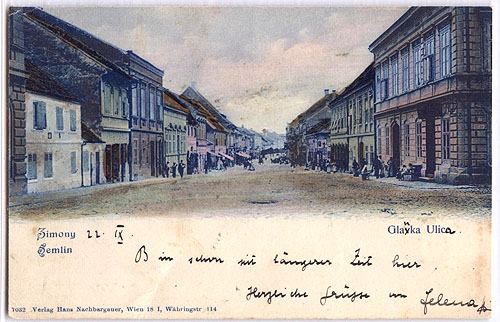 Zimony 22. IX
Semlin
Glavka Ulica
Bin schon seit längerer Zeit hier
Herzliche Grüsse von Jelena
7032 Verlag Hans Nachbargauer, Wien 18 I, Währingstr 114